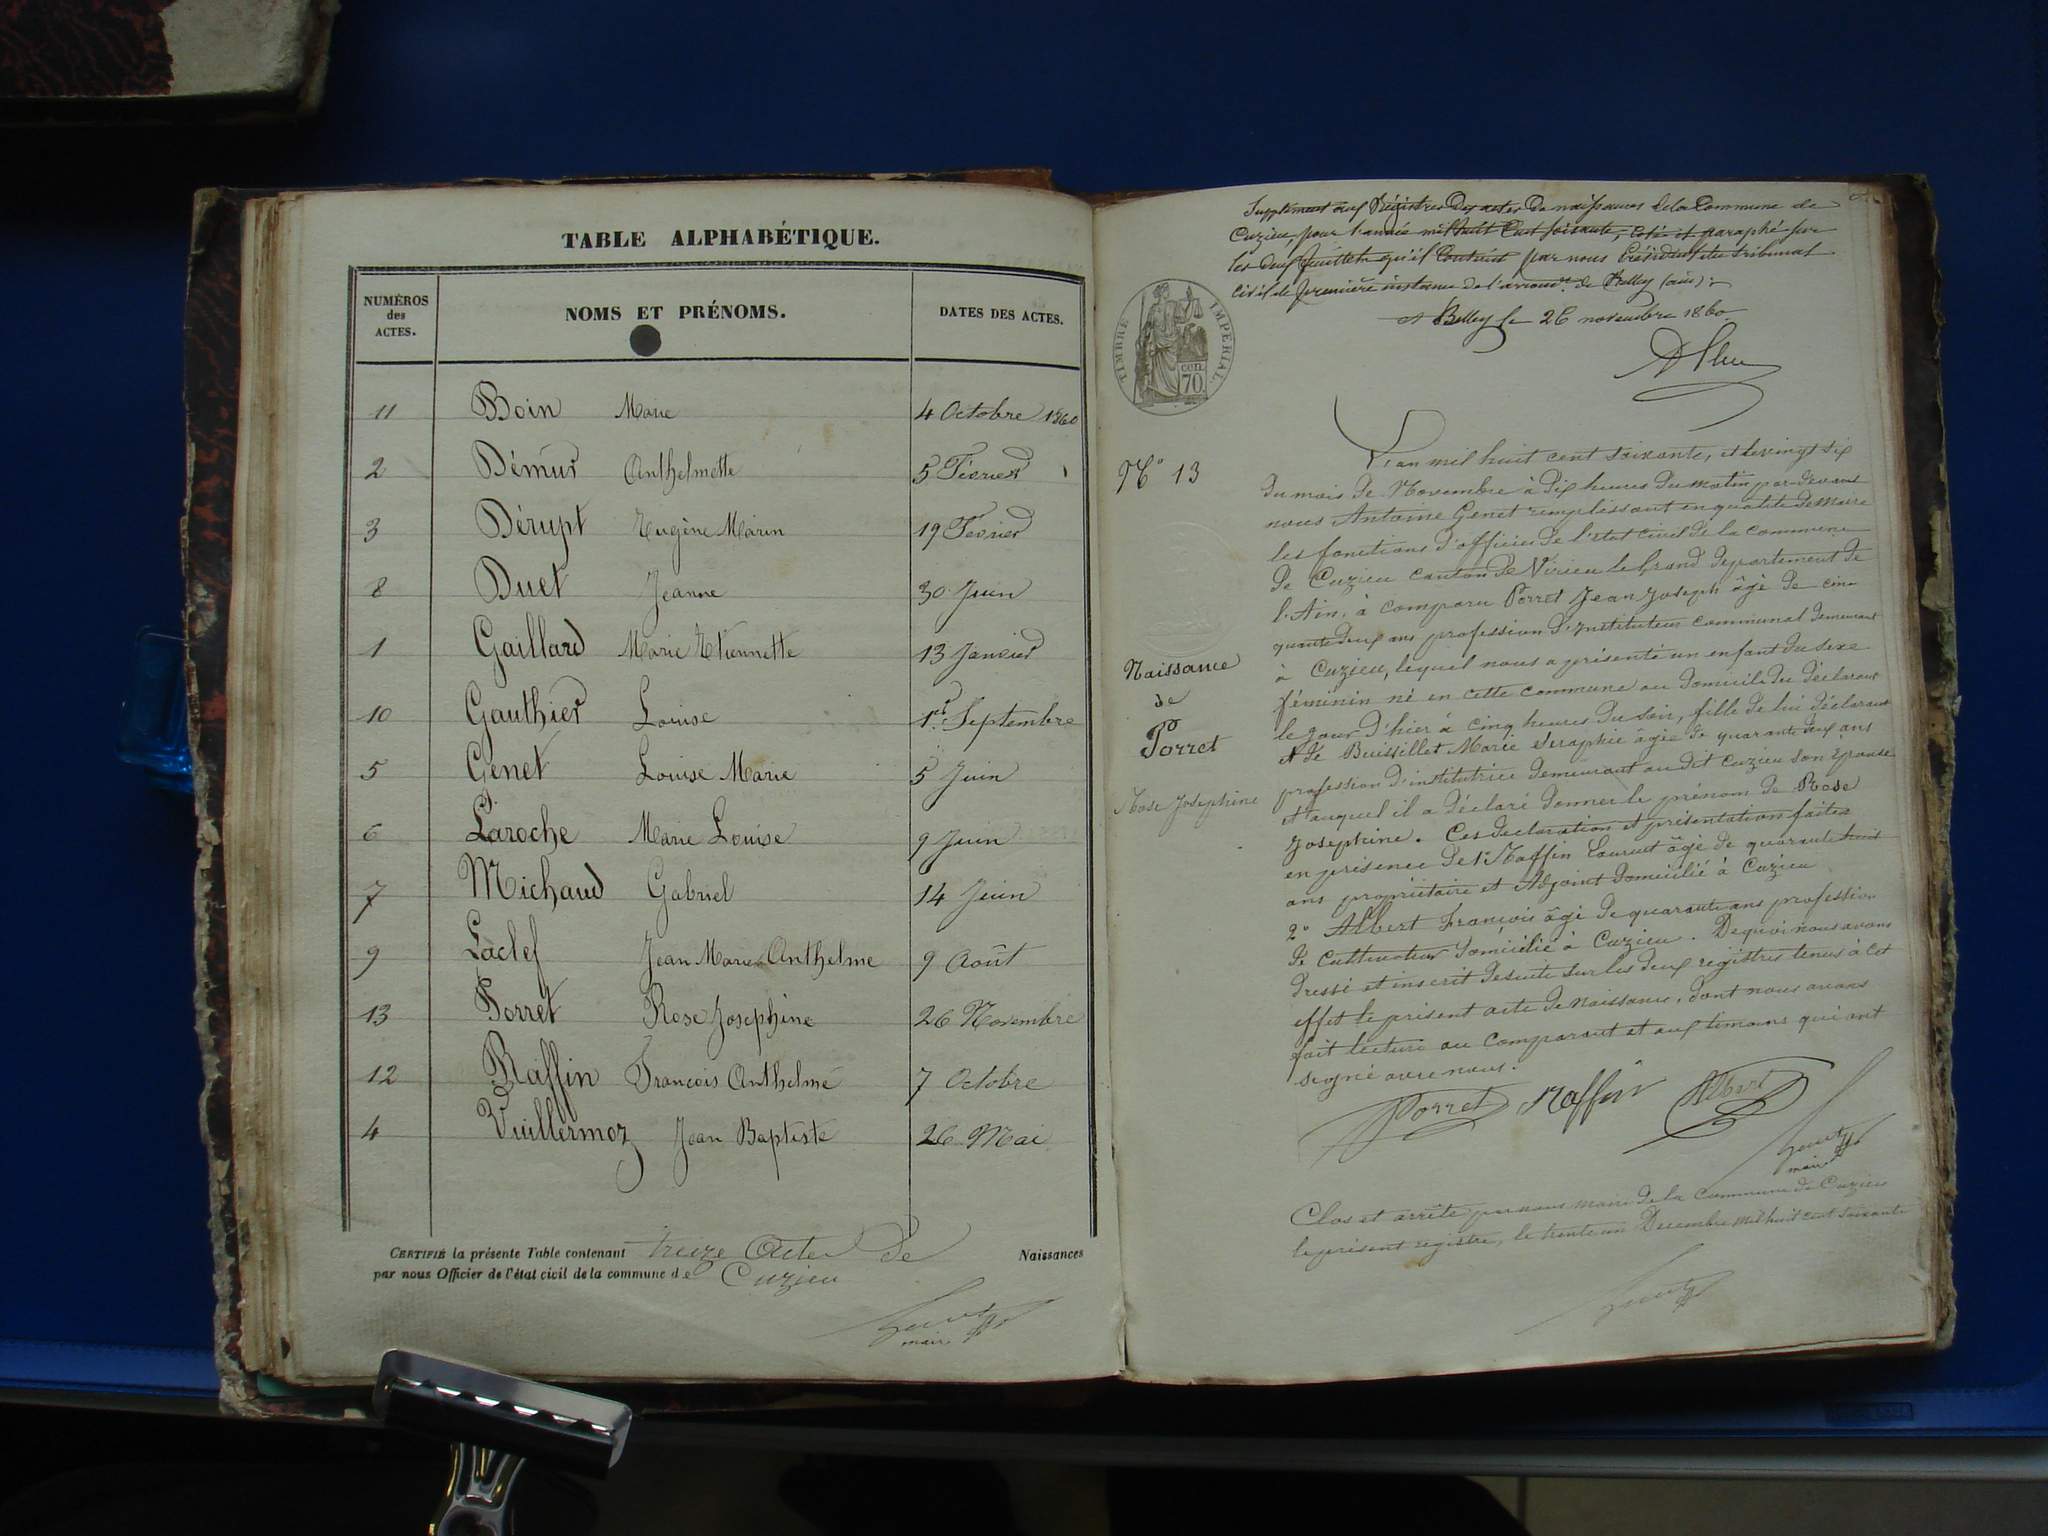 TABLE ALPHABÉTIQUE.
NUMÉROS des ACTES.
NOMS ET PRÉNOMS.
DATES DES ACTES.
11 Boin Marie 4 Octobre 1860
2 Démur Anthelmette 5 Février
3 Dérupt Eugène Marin 19 Février
8 Duet Jeanne 30 Juin
1 Gaillard Marie Etiennette 13 Janvier
10 Gauthier Louise 1er Septembre
5 Genet Louise Marie 5 Juin
6 Laroche Marie Louise 9 Juin
7 Michaud Gabriel 14 Juin
9 Laclef Jean Marie Anthelme 9 Août
13 Porret Rose Josephine 26 Novembre
12 Raffin François Anthelme 7 Octobre
4 Vuillermoz Jean Baptiste 26 Mai
CERTIFIÉ la présente Table contenant treize Actes de Naissances
par nous Officier de l'état civil de la commune de Cuzieu
maire
Supplément aux Régistres des actes de naissances de la Commune de
Cuzieu, pour l'année mil huit Cent soixante, coté et paraphé sur
les deux feuillets qu'il contient par nous Président du tribunal
Civil de première instance de l'arrond. de Belley (ain) :
à Belley le 26 novembre 1860
TIMBRE IMPÉRIAL.
cen. 70.
N° 13
Naissance
de
Porret
Rose Josephine
L'an mil huit cent soixante, et le vingt six
du mois de Novembre à dix heures du matin par-devant
nous Antoine Genet remplissant en qualité de Maire
les fonctions d'officier de l'état civil de la commune
de Cuzieu canton de Virieu le Grand département de
l'Ain, à comparu Porret Jean Joseph âgé de cin
quante deux ans profession d'Instituteur communal demeurant
à Cuzieu, lequel nous a présenté un enfant du sexe
féminin né en cette commune au domicile du déclarant
le jour d'hier à cinq heures du soir, fille de lui déclarant
et de Buissillet Marie Seraphie âgée de quarante deux ans
profession d'institutrice demeurant au dit Cuzieu son épouse
et auquel il a déclaré donner le prénom de Rose
Josephine. Ces déclaration et présentation faites
en présence de 1° Raffin Laurent âgé de quarante huit
ans propriétaire et Adjoint domicilié à Cuzieu
2° Albert François âgé de quarante ans profession
de cultivateur domicilié à Cuzieu. De quoi nous avons
dressé et inscrit desuite sur les deux régistres tenus à cet
effet le présent acte de Naissance, dont nous avons
fait lecture au comparant et aux témoins qui ont
signé avec nous.
Porret Raffin Albert
maire
Clos et arrêté par nous maire de la Commune de Cuzieu
le présent registre, le trente un Décembre mil huit cent soixante